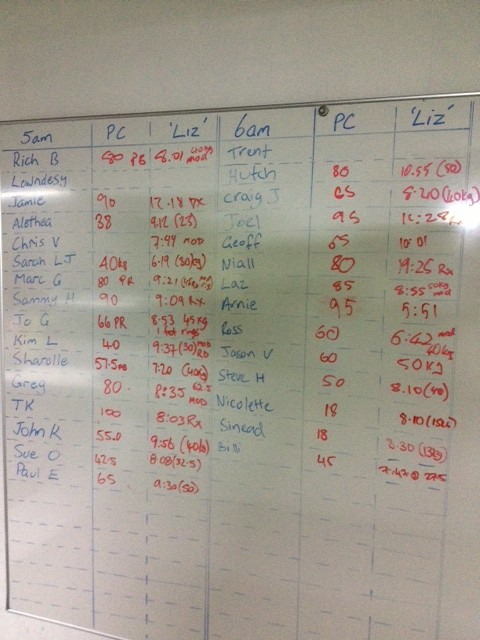 5am PC 'Liz' 6am PC 'Liz'
Rich B 80 PB 8.01 mod Trent
Lowndesy Hutch 80 10.55 (50)
Jamie 90 12.18 RX Craig J 65 8.20 (40kg)
Alethea 38 9.12 (23) Joel 95
Chris V 7:44 MOD Geoff 65 10 01
Sarah LJ 40kg 6.19 (30kg) Niall 80 14:26 Rx
Marc G 80 PR 9:21 Laz 85 8:55 50kg mod
Sammy H 90 9:09 Rx Arnie 95 5:51
Jo G 66 PR 8.53 45kg Ross 60 6:42 mod 40kg
Kim L 40 9:37 (30) Jason V 60 50kg
Sharolle 57.5 7.20 (40kg) Steve H 50 8.10 (40)
Greg 80 8:35 62.5 MOD Nicolette 18 8.10
TK 100 8:03 Rx Sinead 18 3.30
John K 55.0 9:56 (40kg) Billi 45
Sue O 42.5 8:08 (32.5)
Paul E 65 9:30 (50)